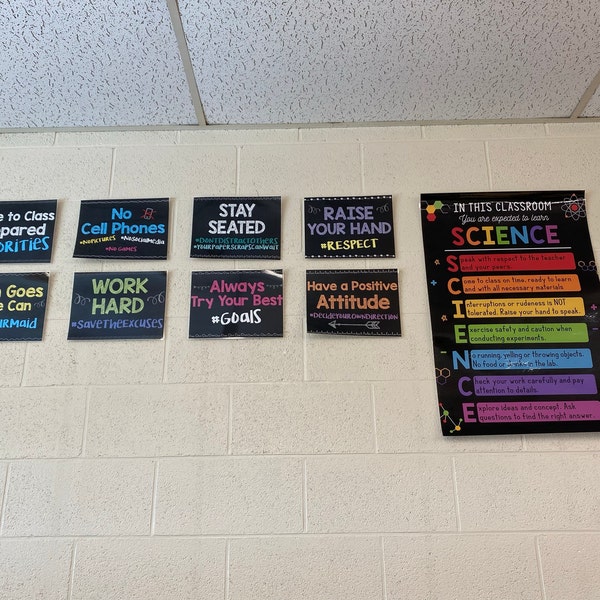 e to Class
pared
ORITIES
No
Cell Phones
#NoPictures #NoSocialMedia
#No Games
STAY
SEATED
#DON'TDISTRACTOTHERS
#YOURPAPERSCRAPSCANWAIT
RAISE
YOUR HAND
#RESPECT
Goes
e Can
IRMAID
WORK
HARD
#SaveTheExcuses
Always
Try Your Best
#GOALS
Have a Positive
Attitude
#DecideYourOwnDirection
IN THIS CLASSROOM
You are expected to learn
SCIENCE
Speak with respect to the teacher
and your peers.
Come to class on time, ready to learn
and with all necessary materials
Interruptions or rudeness is NOT
tolerated. Raise your hand to speak.
Exercise safety and caution when
conducting experiments.
No running, yelling or throwing objects.
No food or drinks in the lab.
Check your work carefully and pay
attention to details.
Explore ideas and concept. Ask
questions to find the right answer.